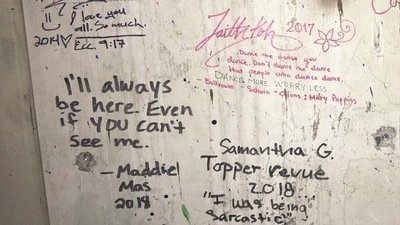 I love you
all. So much.
2014
Ecc. 9:17
Faith Koh 2017
Dance the dance you
dance. Don't dance the dance
that people who dance dance.
DANCE MORE WORRY LESS
- Ballroom - Schola - Ojams: Mary Poppins
I'll always
be here. Even
if you can't
see me.
- Maddie
Mas
2018
Samantha G.
Topper revue
2018
"I was being
sarcastic"